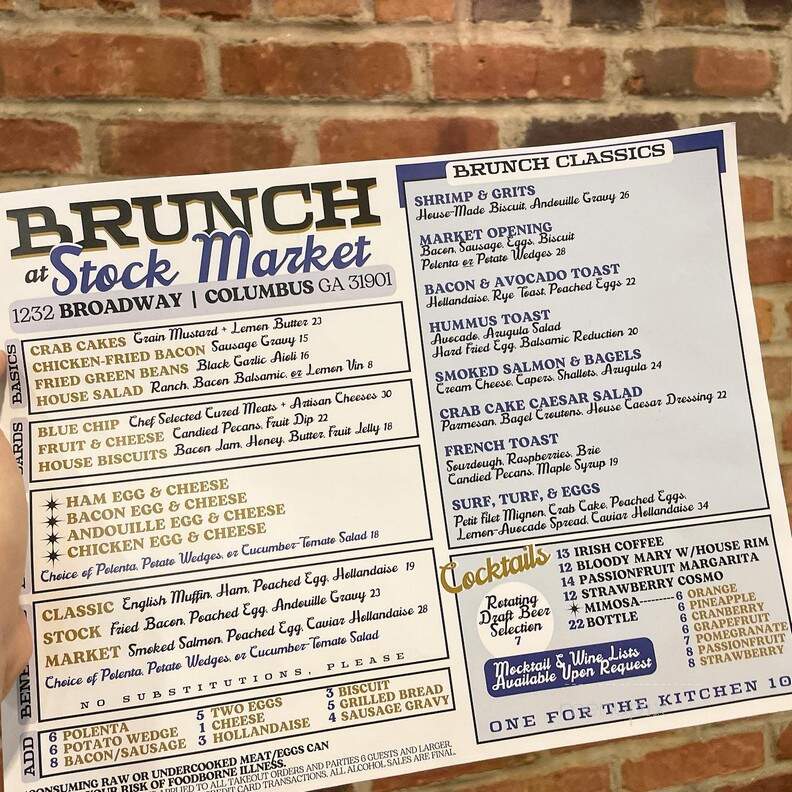 BRUNCH
at Stock Market
1232 BROADWAY | COLUMBUS GA 31901
BASICS
CRAB CAKES Grain Mustard + Lemon Butter 23
CHICKEN-FRIED BACON Sausage Gravy 15
FRIED GREEN BEANS Black Garlic Aioli 16
HOUSE SALAD Ranch, Bacon Balsamic, or Lemon Vin 8
ARDS
BLUE CHIP Chef Selected Cured Meats + Artisan Cheeses 30
FRUIT & CHEESE Candied Pecans, Fruit Dip 22
HOUSE BISCUITS Bacon Jam, Honey, Butter, Fruit Jelly 18
HAM EGG & CHEESE
BACON EGG & CHEESE
ANDOUILLE EGG & CHEESE
CHICKEN EGG & CHEESE
Choice of Polenta, Potato Wedges, or Cucumber-Tomato Salad 18
BENE
CLASSIC English Muffin, Ham, Poached Egg, Hollandaise 19
STOCK Fried Bacon, Poached Egg, Andouille Gravy 23
MARKET Smoked Salmon, Poached Egg, Caviar Hollandaise 28
Choice of Polenta, Potato Wedges, or Cucumber-Tomato Salad
NO SUBSTITUTIONS, PLEASE
ADD
6 POLENTA
6 POTATO WEDGE
8 BACON/SAUSAGE
5 TWO EGGS
1 CHEESE
3 HOLLANDAISE
3 BISCUIT
5 GRILLED BREAD
4 SAUSAGE GRAVY
CONSUMING RAW OR UNDERCOOKED MEAT/EGGS CAN
YOUR RISK OF FOODBORNE ILLNESS.
APPLIED TO ALL TAKEOUT ORDERS AND PARTIES 6 GUESTS AND LARGER.
CREDIT CARD TRANSACTIONS. ALL ALCOHOL SALES ARE FINAL.
BRUNCH CLASSICS
SHRIMP & GRITS
House-Made Biscuit, Andouille Gravy 26
MARKET OPENING
Bacon, Sausage, Eggs, Biscuit
Polenta or Potato Wedges 28
BACON & AVOCADO TOAST
Hollandaise, Rye Toast, Poached Eggs 22
HUMMUS TOAST
Avocado, Arugula Salad
Hard Fried Egg, Balsamic Reduction 20
SMOKED SALMON & BAGELS
Cream Cheese, Capers, Shallots, Arugula 24
CRAB CAKE CAESAR SALAD
Parmesan, Bagel Croutons, House Caesar Dressing 22
FRENCH TOAST
Sourdough, Raspberries, Brie
Candied Pecans, Maple Syrup 19
SURF, TURF, & EGGS
Petit Filet Mignon, Crab Cake, Poached Eggs,
Lemon-Avocado Spread, Caviar Hollandaise 34
Cocktails
13 IRISH COFFEE
12 BLOODY MARY W/HOUSE RIM
14 PASSIONFRUIT MARGARITA
12 STRAWBERRY COSMO
MIMOSA---------
22 BOTTLE
6 ORANGE
6 PINEAPPLE
6 CRANBERRY
6 GRAPEFRUIT
7 POMEGRANATE
8 PASSIONFRUIT
8 STRAWBERRY
Rotating
Draft Beer
Selection
7
Mocktail & Wine Lists
Available Upon Request
ONE FOR THE KITCHEN 10